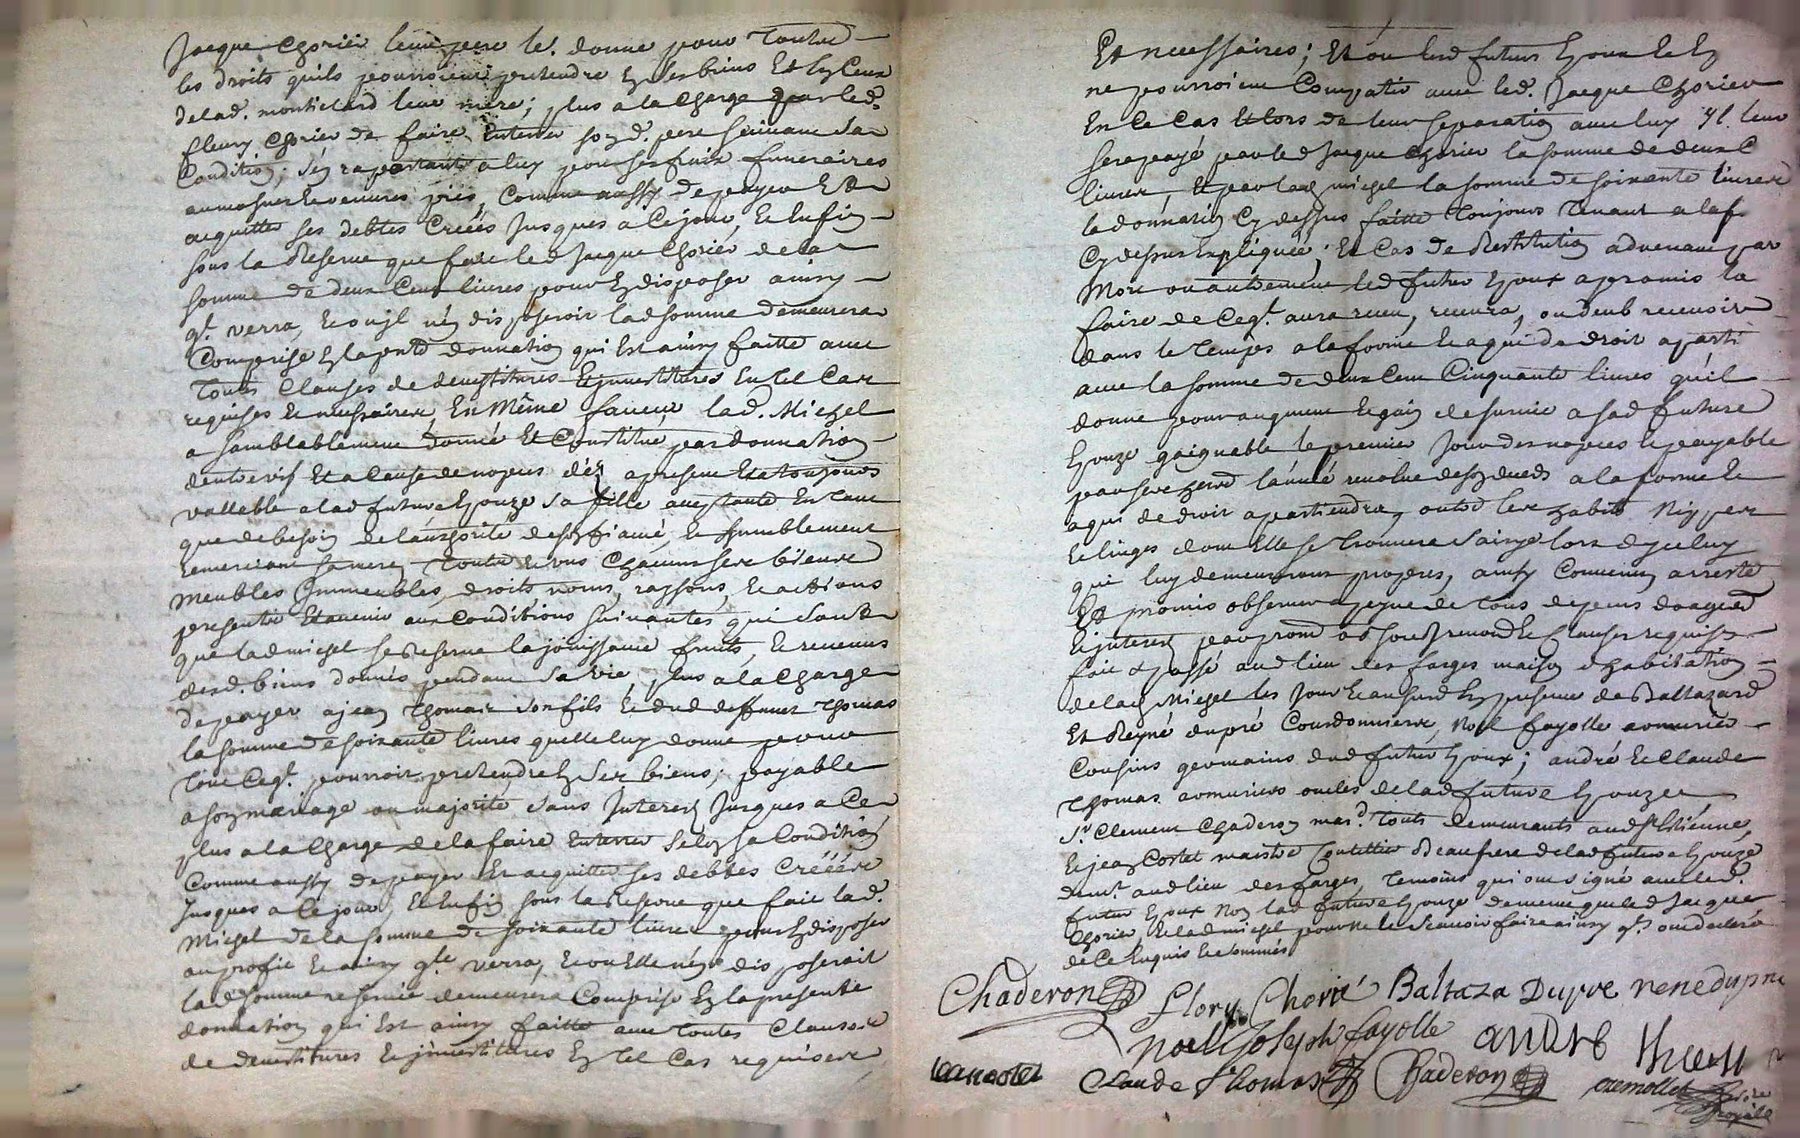 Jacque Chorier leur pere le. donne pour toutes
les droits quils pourroient pretendre En ses biens Et En Ceux
de lad. montielard leur mere; plus a la Charge par led.
fleury Chorier de faire Enterrer sond. pere suivant sa
Condition, s'en raportant a luy pour ses fraix funeraires
Comme aussy de payer Et
acquitter ses debtes Creées Jusques a Ce jour, Et Enfin
sous la Reserve que fait led Jacque Chorier de la
somme de deux Cent livres pour En disposer ainsy
q.t verra, Et ou jl n'en disposeroit lad somme demeurera
Comprise En la pnte donnation qui Est ainsy faitte avec
toutes Clauses de devestitures Et jnvestitures En tel Cas
requises Et necessaires, En Même faveur lad. Michel
a semblablement donné Et Constitué par donnation
d'entre vif Et a Cause de nopces d'és a present Et a toujours
vallable a lad future Epouze sa fille acceptante En tant
que de besoin de l'authorité de son fiancé, Et humblement
remerciant sa mere, toutes Et uns Chacuns ses biens
Meubles Immeubles, droits noms, raysons, Et actions
presents Et avenir aux Conditions suivantes qui sont
que lad michel se Reserve la jouissance fruits, Et revenus
desd. biens donnés pendant sa vie, plus a la Charge
de payer a jean thomas son fils Et dud deffunt thomas
la somme de soixante livres quelle luy donne pour
tout Ceq.t pourroit pretendre En ses biens; payable
a son mariage ou majorité sans Interest Jusques a Ce
plus a la Charge de la faire Enterrer selon sa Condition
Comme aussy de payer Et acquitter ses debtes Créées
Jusques a Ce jour, Et Enfin sous la Reserve que fait lad.
Michel de la somme de soixante livres pour En disposer
au profit Et ainsy q.le verra, Et ou Elle n'en disposerait
lad somme reservée demeurera Comprise En la presente
donnation qui Est ainsy faitte avec toutes Clauses
de devestitures Et jnvestitures En tel Cas requises
Et necessaires; Et ou lesd futurs Epoux Et Ep
ne pourroient Compatir avec led. Jacque Chorier
En Ce Cas Et lors de leur separation avec luy Jl leur
sera payé par led Jacque Chorier la somme de deux C
livres Et par lad michel la somme de soixante livres
la donnation Cy dessus faitte toujours tenant a la f
Cy dessus Expliquée; En Cas de Restitution advenant par
Mort ou autrement led futur Epoux a promis la
faire de Ceq.t aura receu, recevra, ou deub recevoir
dans le temps a la forme Et a qui de droit aparti
avec la somme de deux Cent Cinquante livres qu'il
donne pour augment Et gain de survie a sad future
Epouze gaignable le premier Jour des nopces Et payable
par ses hers l'année revolue de son deceds a la forme Et
a qui de droit apartiendra, outre les habits Nippes
Et linges dont Elle se trouvera saisye lors d'yceluy
qui luy demeureront propres, ainsy Convenu arresté
Et promis observer a peyne de tous depens domages
Et jnterest par promd obd soub renond Et Clauses requises
fait & passé aud lieu des farges maison d'habitation
de lad Michel les Jour Et an susd En presence de Baltazard
Et Reyné dupré Courdonniers, Noel fayolle armurier
Cousins germains dud futur Epoux; andré Et Claude
thomas armuriers oncles de lad future Epouze
S.r Clement Chaderon mar.d touts demeurants aud St Etienne
Et jean Costet maistre Coutellier Beaufrere de lad future Epouze
dem.t aud lieu des farges, temoins qui ont signé avec led.
futur Epoux Non lad future Epouze de meme que led Jacque
Chorier Et lad michel pour ne le scavoir faire ainsy q.t ont declaré
de Ce Enquis Et sommés
Chaderon flory Chorié Baltaza Dupre rene dupre
noel Joseph fayolle andre thomas
Jean costet claude thomas Chaderon cremollet Nore
Royal